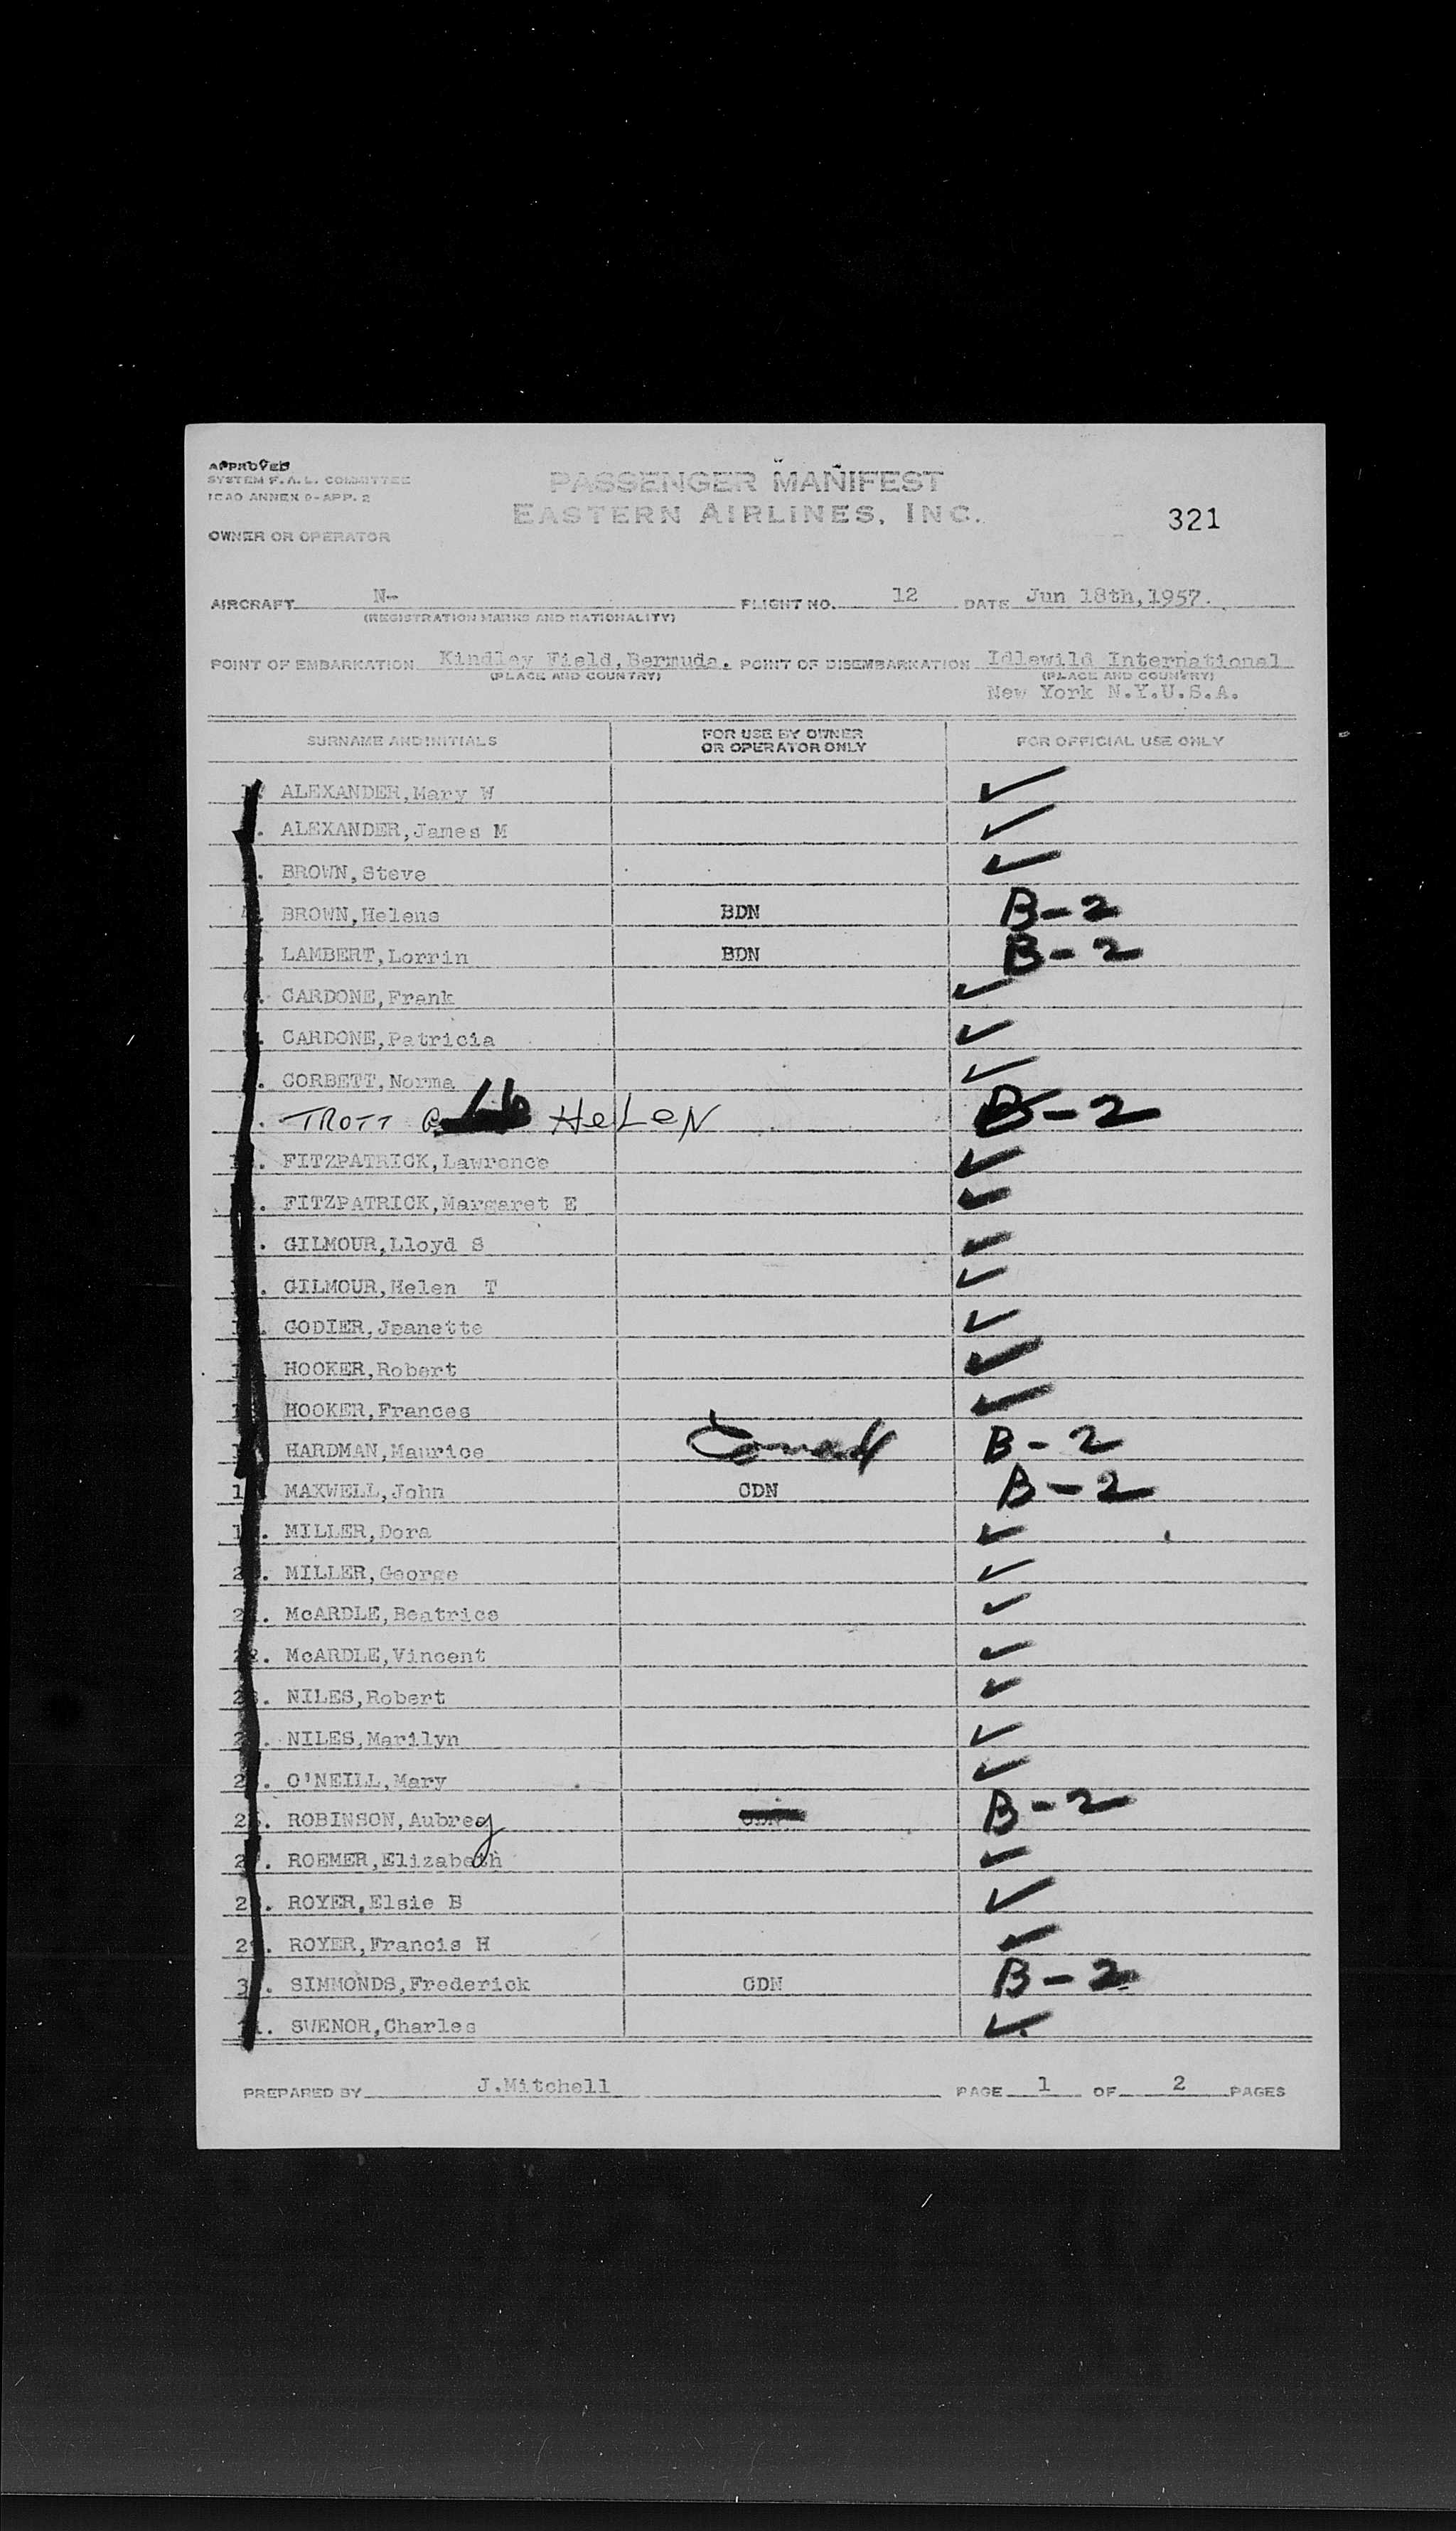 APPROVED
SYSTEM F.A.L. COMMITTEE
ICAO ANNEX 9-APP. 2
PASSENGER MANIFEST
EASTERN AIRLINES, INC.
321
OWNER OR OPERATOR
AIRCRAFT N- FLIGHT NO. 12 DATE Jun 18th,1957.
(REGISTRATION MARKS AND NATIONALITY)
POINT OF EMBARKATION Kindley Field,Bermuda. POINT OF DISEMBARKATION Idlewild International
(PLACE AND COUNTRY) (PLACE AND COUNTRY)
New York N.Y.U.S.A.
SURNAME AND INITIALS FOR USE BY OWNER OR OPERATOR ONLY FOR OFFICIAL USE ONLY
ALEXANDER,Mary W ✓
ALEXANDER,James M ✓
BROWN,Steve ✓
BROWN,Helene BDN B-2
LAMBERT,Lorrin BDN B-2
CARDONE,Frank ✓
CARDONE,Patricia ✓
CORBETT,Norma ✓
TROTT HeLeN B-2
FITZPATRICK,Lawrence ✓
FITZPATRICK,Margaret E ✓
GILMOUR,Lloyd S ✓
GILMOUR,Helen T ✓
GODIER,Jeanette ✓
HOOKER,Robert ✓
HOOKER,Frances ✓
HARDMAN,Maurice B-2
MAXWELL,John CDN B-2
MILLER,Dora ✓
MILLER,George ✓
McARDLE,Beatrice ✓
McARDLE,Vincent ✓
NILES,Robert ✓
NILES,Marilyn ✓
O'NEILL,Mary ✓
ROBINSON,Aubrey CDN B-2
ROEMER,Elizabeth ✓
ROYER,Elsie B ✓
ROYER,Francis H ✓
SIMMONDS,Frederick CDN B-2
SVENOR,Charles ✓
PREPARED BY J.Mitchell PAGE 1 OF 2 PAGES